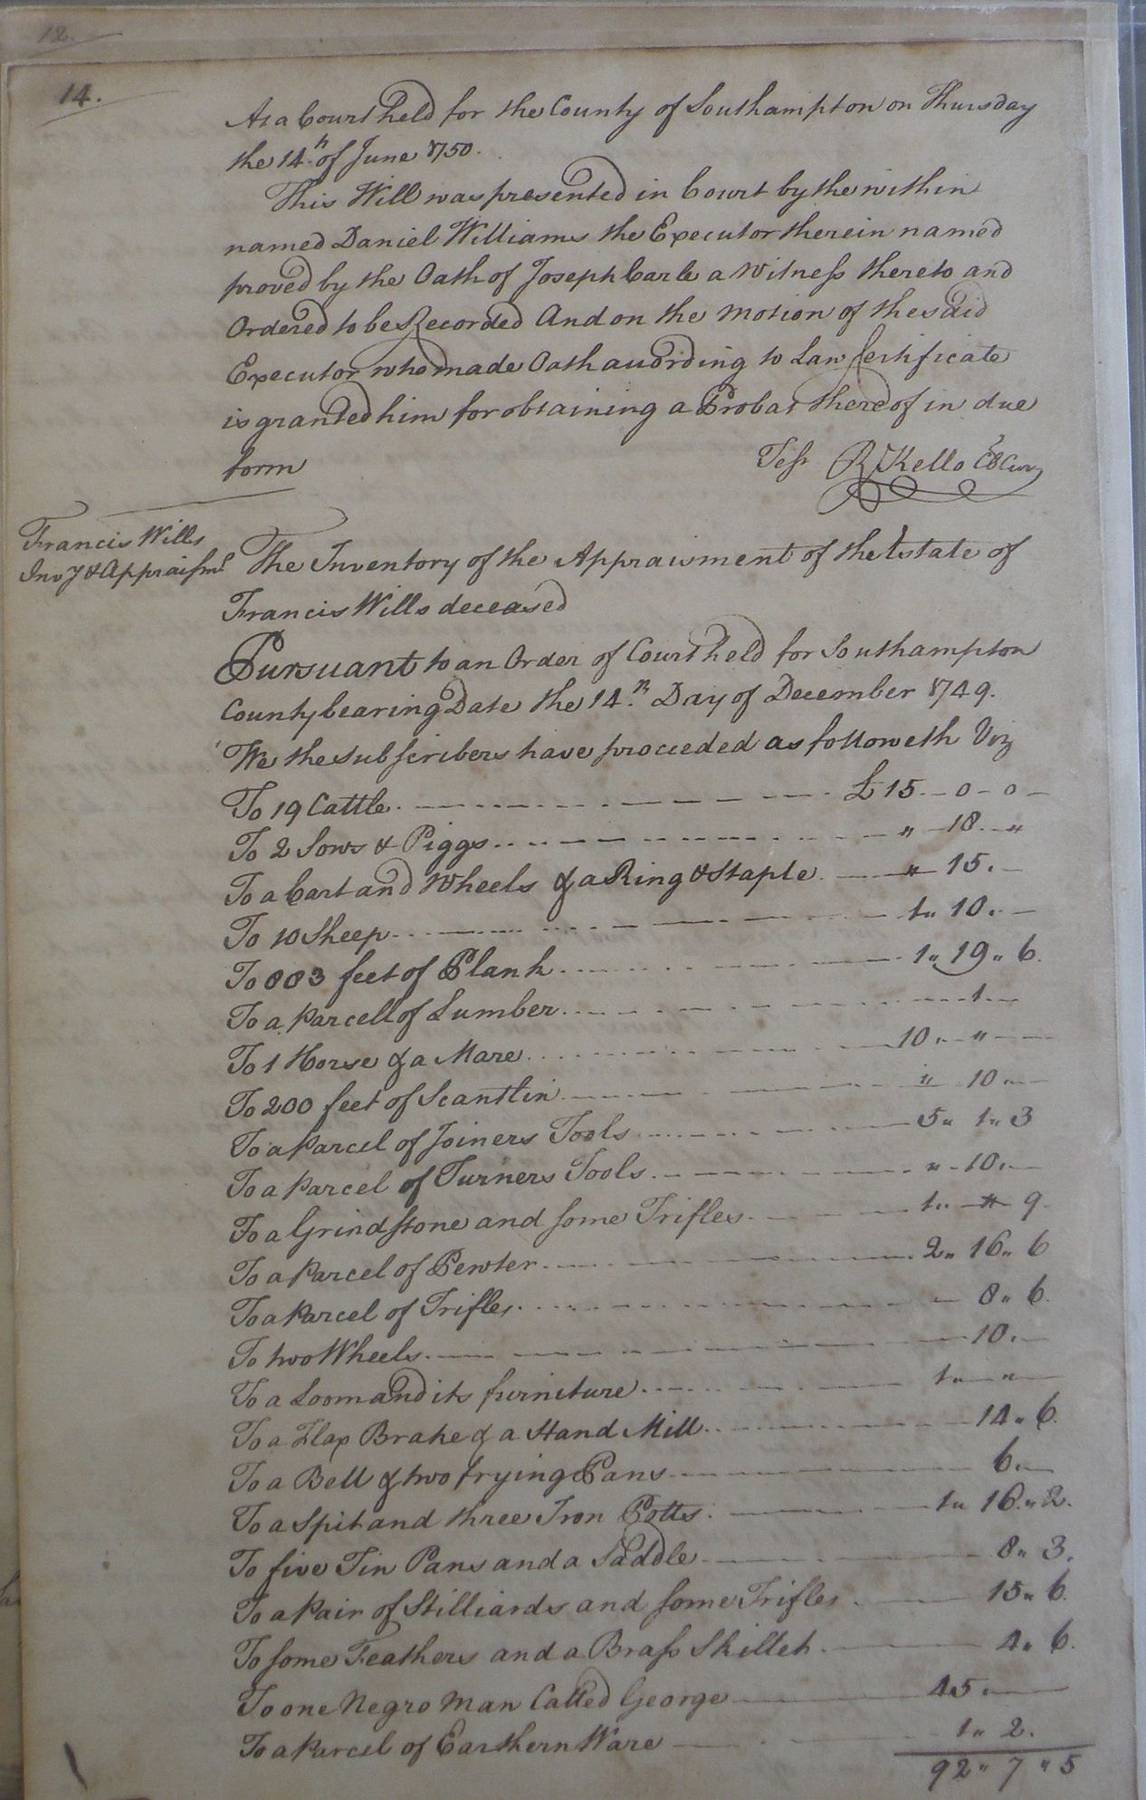 12.
14.
At a Court held for the County of Southampton on Thursday
the 14th of June 1750.
This Will was presented in Court by the within
named Daniel Williams the Executor therein named
proved by the Oath of Joseph Carle a Witness thereto and
Ordered to be Recorded And on the Motion of the said
Executor who made Oath according to Law Certificate
is granted him for obtaining a Probat thereof in due
form
Test R Kello Cl Cur
Francis Wills
Inv y & Appraismt
The Inventory of the Appraisment of the Estate of
Francis Wills deceased
Pursuant to an Order of Court held for Southampton
County bearing Date the 14th Day of December 1749.
We the subscribers have proceeded as followeth Viz
To 19 Cattle. £ 15 - 0 - 0
To 2 Sows & Piggs " 18 "
To a Cart and Wheels & a Ring & Staple " 15.
To 10 Sheep 1 " 10.
To 883 feet of Plank 1 " 19 " 6.
To a Parcell of Lumber 1
To 1 Horse & a Mare 10 " "
To 200 feet of Scantlin " 10 "
To a Parcel of Joiners Tools 5 " 1 " 3
To a Parcel of Turners Tools " 10 "
To a Grindstone and some Trifles 1 " " 9
To a Parcel of Pewter 2 " 16 " 6
To a Parcel of Trifles 8 " 6
To two Wheels 10.
To a Loom and its furniture 1 " "
To a Flax Brake & a Hand Mill 14 " 6.
To a Bell & two frying Pans 6.
To a Spit and three Iron Potts 1 " 16 " 2.
To five Tin Pans and a Saddle 8 " 3.
To a Pair of Stilliards and some Trifles 15 " 6.
To some Feathers and a Brass Skillet 4 " 6.
To one Negro Man Called George 45.
To a Parcel of Earthern Ware 1 " 2.
92 " 7 " 5